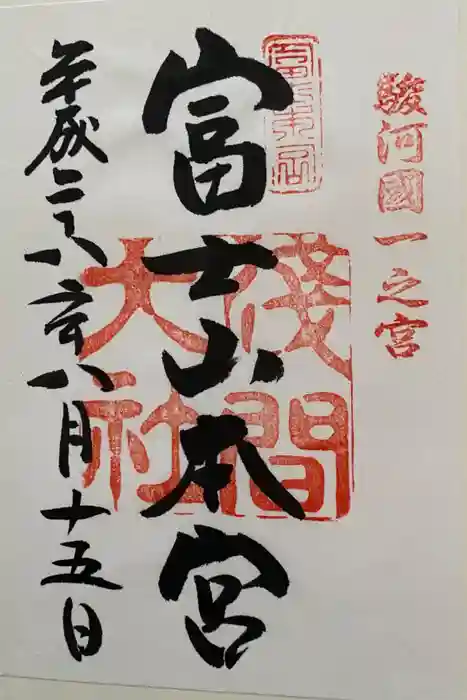 駿河國一之宮
富士山本宮
淺間
大社
平成二十八年八月十五日